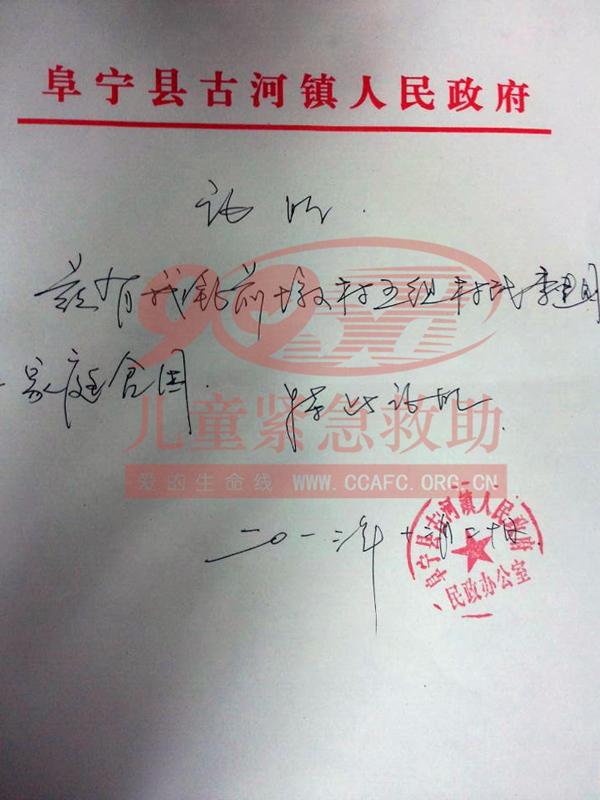 阜宁县古河镇人民政府
证明
兹有我镇前墩村五组村民李
家庭贫困. 特此证明.
9958
儿童紧急救助
爱的生命线 WWW.CCAFC.ORG.CN
二〇一三年十二月二十日.
阜宁县古河镇人民政府
民政办公室